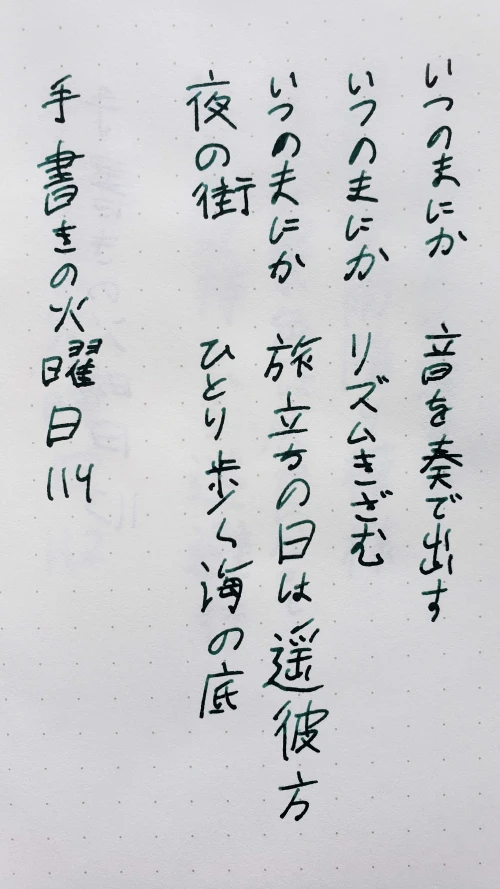 いつのまにか 音を奏で出す
いつのまにか リズムきざむ
いつのまにか 旅立ちの日は遥彼方
夜の街 ひとり歩く海の底
手書きの火曜日114